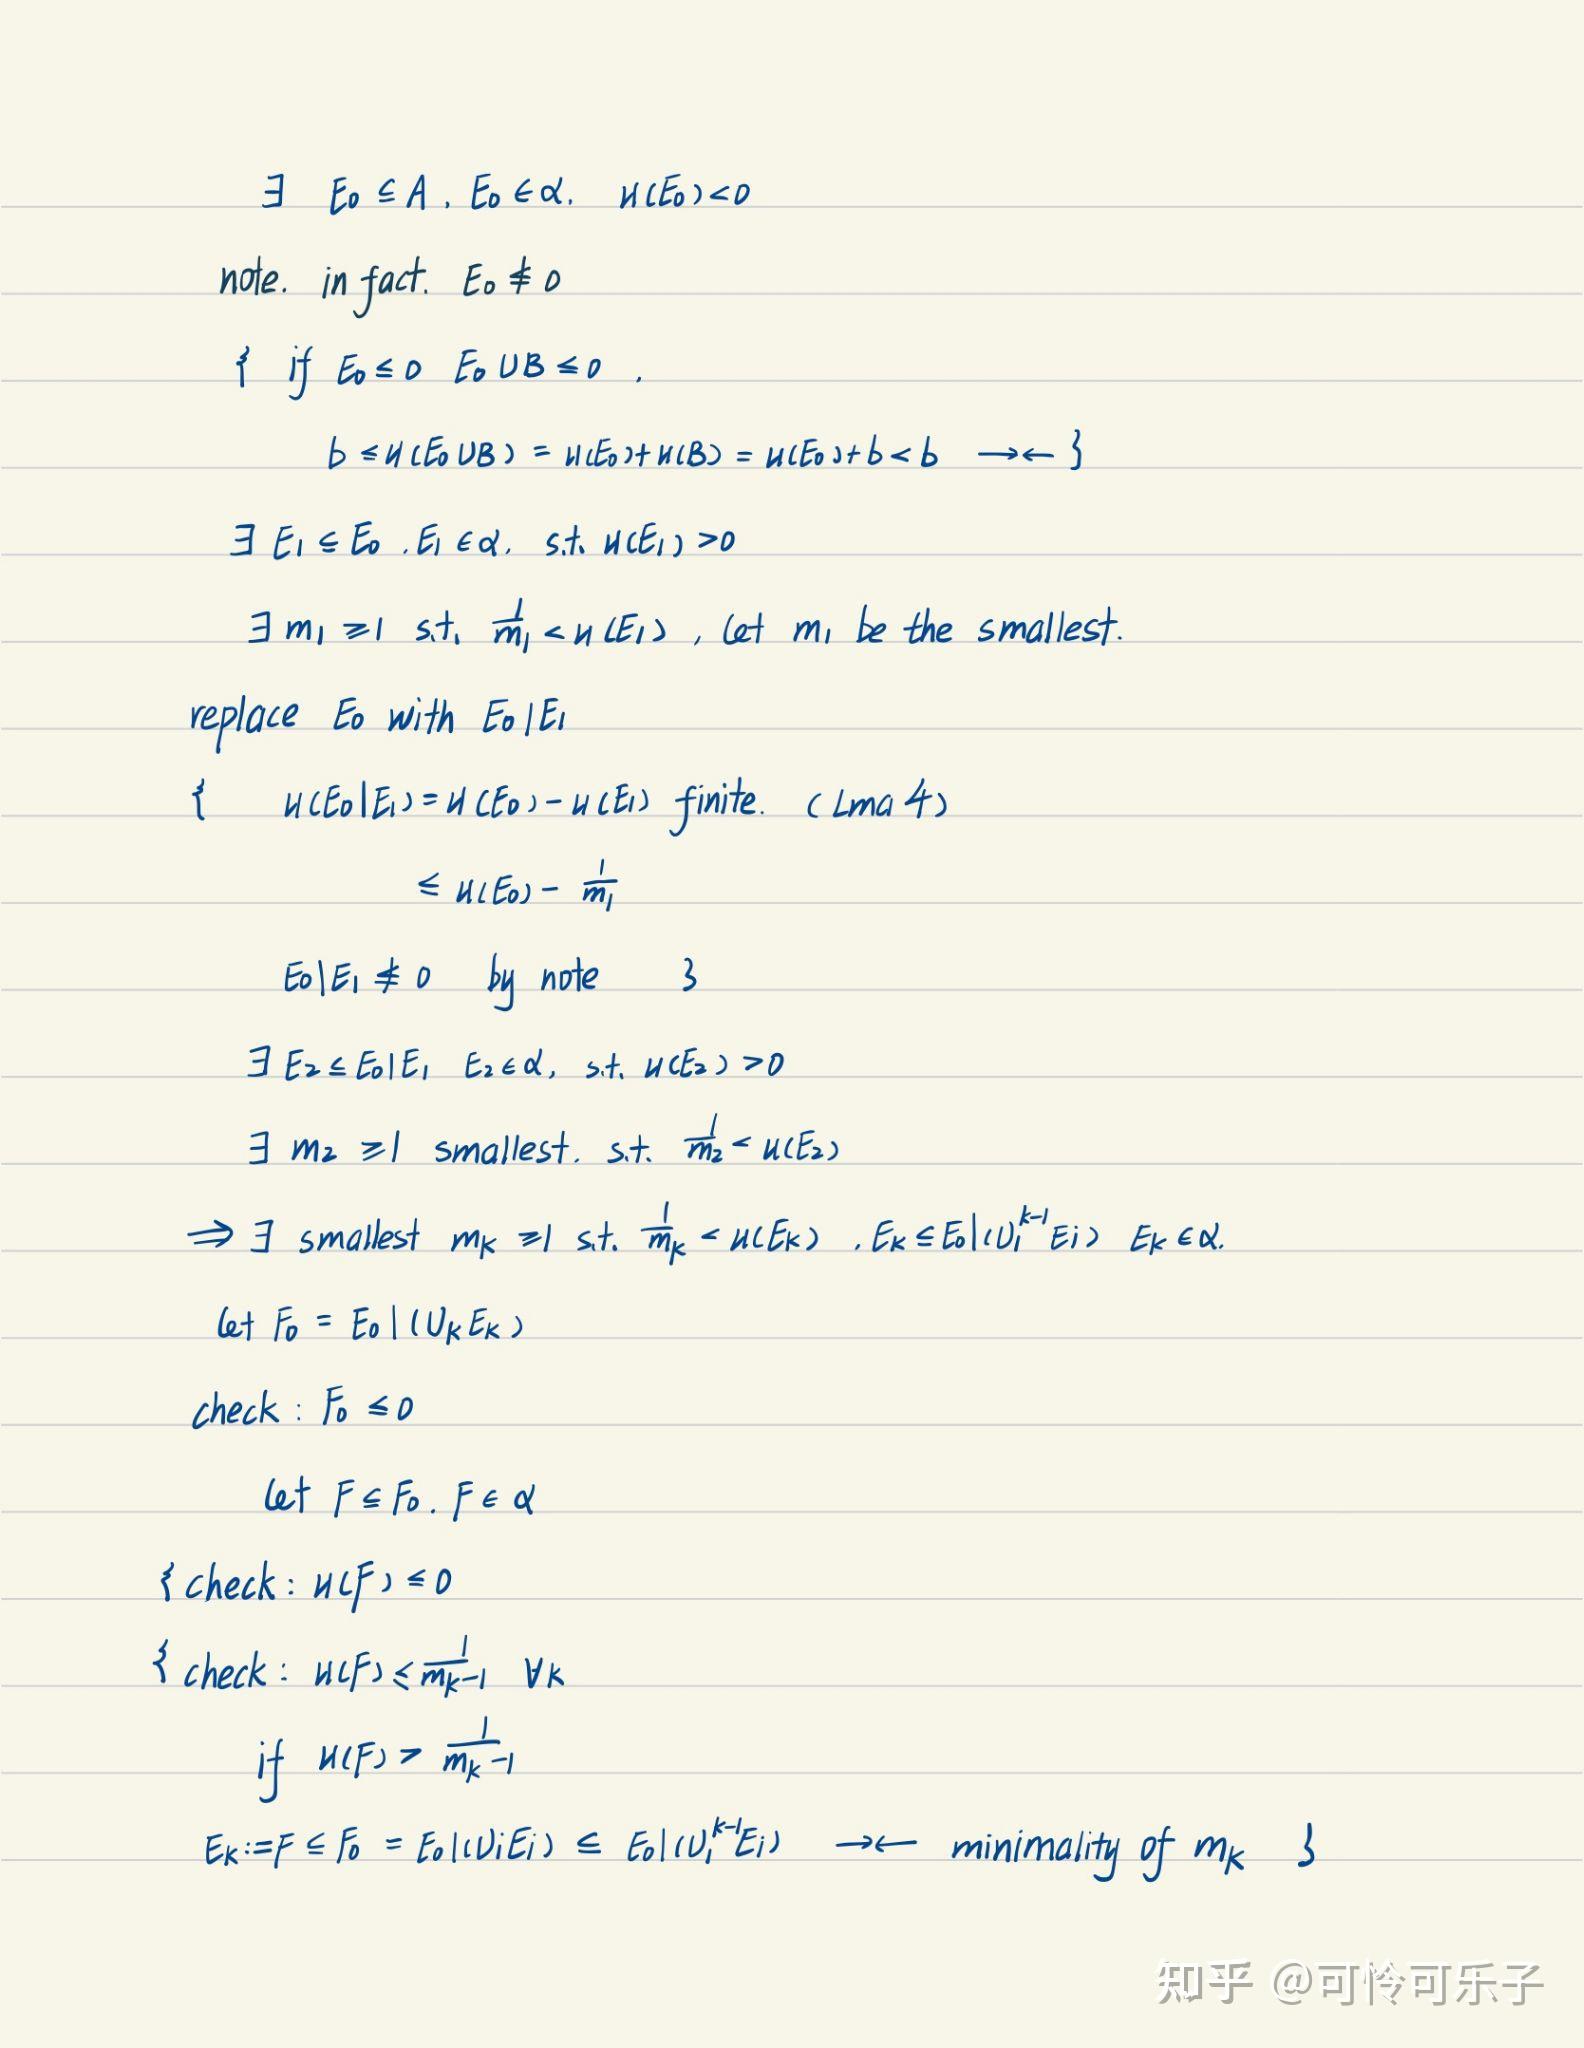 ∃ E₀ ⊆ A, E₀ ∈ α, μ(E₀) < 0
note. in fact. E₀ ≰ 0
{ if E₀ ≤ 0 E₀ ∪ B ≤ 0 .
b ≤ μ(E₀ ∪ B) = μ(E₀) + μ(B) = μ(E₀) + b < b →← }
∃ E₁ ⊆ E₀ . E₁ ∈ α. s.t. μ(E₁) > 0
∃ m₁ ≥ 1 s.t. 1/m₁ < μ(E₁) , let m₁ be the smallest.
replace E₀ with E₀|E₁
{ μ(E₀|E₁) = μ(E₀) − μ(E₁) finite. (Lma 4)
≤ μ(E₀) − 1/m₁
E₀|E₁ ≰ 0 by note }
∃ E₂ ⊆ E₀|E₁ E₂ ∈ α, s.t. μ(E₂) > 0
∃ m₂ ≥ 1 smallest. s.t. 1/m₂ < μ(E₂)
⇒ ∃ smallest mₖ ≥ 1 s.t. 1/mₖ < μ(Eₖ) . Eₖ ⊆ E₀|(∪₁ᵏ⁻¹ Eᵢ) Eₖ ∈ α.
let F₀ = E₀|(∪ₖ Eₖ)
check : F₀ ≤ 0
let F ⊆ F₀ . F ∈ α
{ check : μ(F) ≤ 0
{ check : μ(F) ≤ 1/(mₖ−1) ∀k
if μ(F) > 1/(mₖ−1)
Eₖ := F ⊆ F₀ = E₀|(∪ᵢ Eᵢ) ⊆ E₀|(∪₁ᵏ⁻¹ Eᵢ) →← minimality of mₖ }
知乎 @可怜可乐子